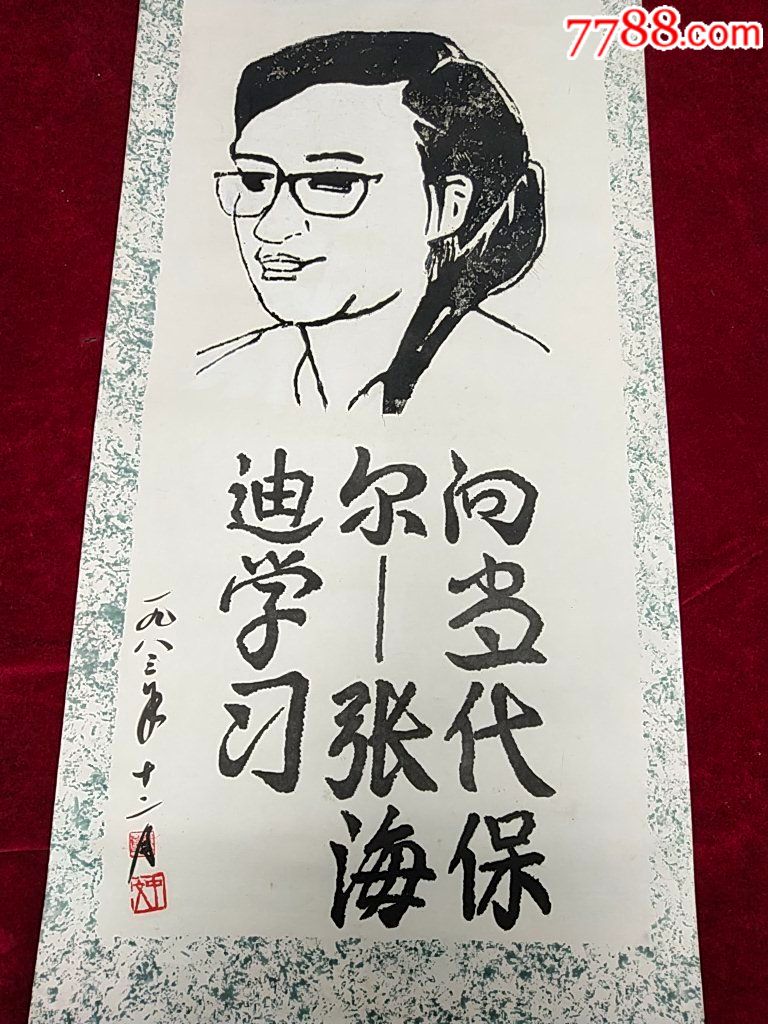 7788.com
向当代保
尔—张海
迪学习
一九八三年十二月